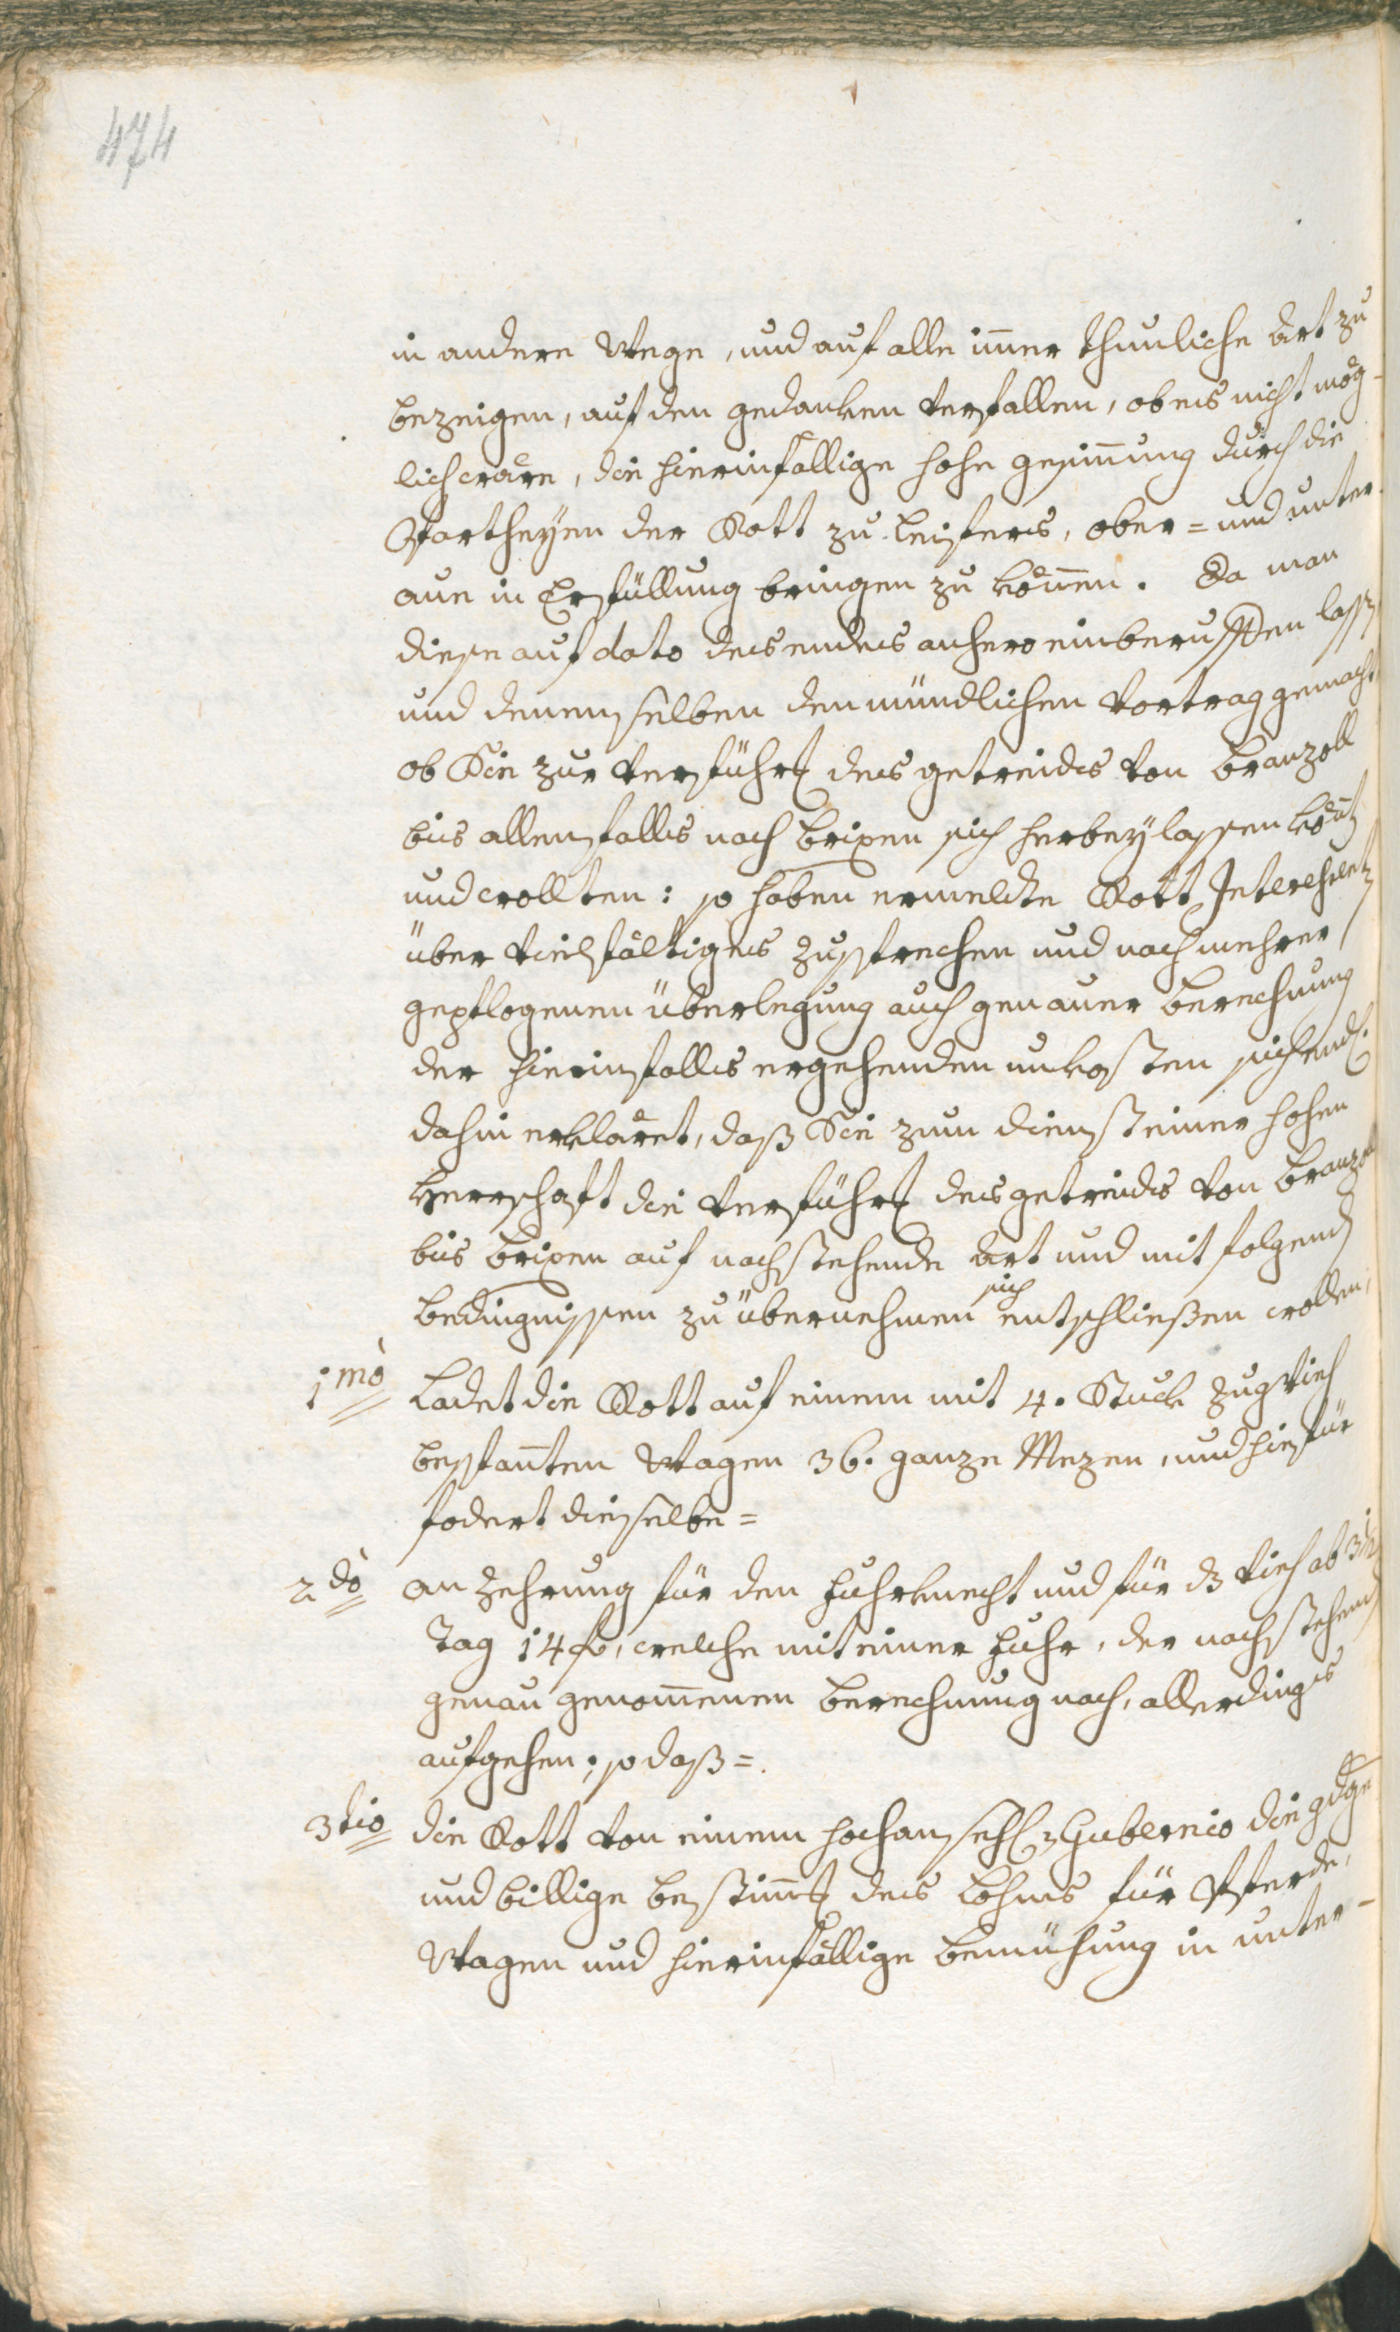 474
in andere Wege, und auf alle im̄er thunliche Art zu
bezeigen, auf den gedanken verfallen, ob es nicht mög-
lich wäre, die hierinfällige hohe gesin̄ung durch die
Partheyen der Rott zu Leifers, ober= und unter
aue in Erfüllung bringen zu kön̄en. Da man
diese auf dato des endes anhero einberuffen lassen
und denenselben den mündlichen Vortrag gemacht
ob Sie zur Verführung des getreides von Branzoll
bis allenfalls nach Brixen sich herbeylassen kön̄ten
und wollten: so haben ermelte Rott Interessenten
über vielfältiges zusprechen und nach mehrer
gepflogenen überlegung auch genauer berechnung
der hierinfalls ergehenden unkosten sich endl.
dahin erkläret, daß Sie zum dienst einer hohen
Herrschaft die Verführung des getreides von Branzoll
bis Brixen auf nachstehende Art und mit folgenden
bedingnissen zu übernehmen sich entschließen wollen,
1mo Ladet die Rott auf einem mit 4. Stuck Zugvieh
bespan̄ten Wagen 36. ganze Mezen, und hiefür
fodert dieselbe=
2do an Zehrung für den Fuhrknecht und für das Vieh ab 3½
Tag 14 f, welche mit einer Fuhr, der nachstehend
genau genom̄enen berechnung nach, allerdings
aufgehen; so daß=
3tio die Rott von einem hochansehl. Gubernio die gdge
und billige bestim̄ung des Lohns für Pferde,
Wagen und hierinfällige bemühung in unter-